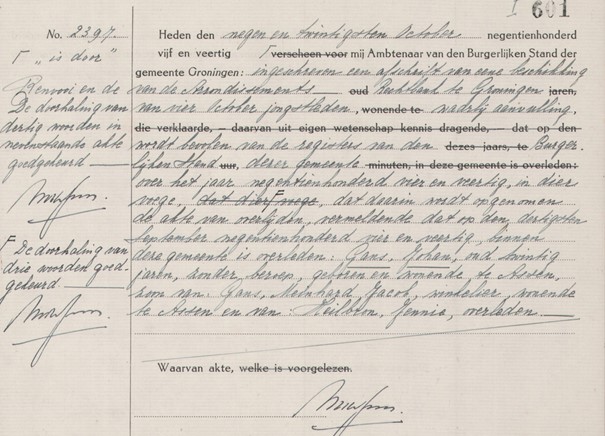 No. 2397.
Γ „is door”
Renvooi en de
De doorhaling van
dertig woorden in
nevenstaande akte
goedgekeurd —
Γ De doorhaling van
drie woorden goed-
gekeurd —
I 601
Heden den negen en twintigsten October negentienhonderd
vijf en veertig Γ verscheen voor mij Ambtenaar van den Burgerlijken Stand der
gemeente Groningen: ingeschreven een afschrift van eene beschikking
van de Arrondissements — oud Rechtbank te Groningen jaren,
van vier October jongstleden, wonende te waarbij aanvulling
die verklaarde, — daarvan uit eigen wetenschap kennis dragende, — dat op den
wordt bevolen van de registers van den dezes jaars, te Burger-
lijken Stand uur, dezer gemeente minuten, in deze gemeente is overleden:
over het jaar negentienhonderd vier en veertig, in dier
voege, dat dier voege, dat daarin wordt opgenomen
de akte van overlijden, vermeldende dat op den dertigsten
September negentienhonderd vier en veertig, binnen
deze gemeente is overleden: Gans, Johan, oud twintig
jaren, zonder beroep, geboren en wonende te Assen,
zoon van: Gans, Meinhard Jacob, winkelier, wonende
te Assen en van Heilbron, Jennie, overleden. —
Waarvan akte, welke is voorgelezen.